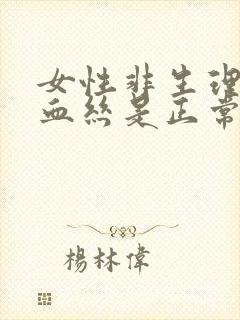 女性非生理
血絲是正常
楊林偉